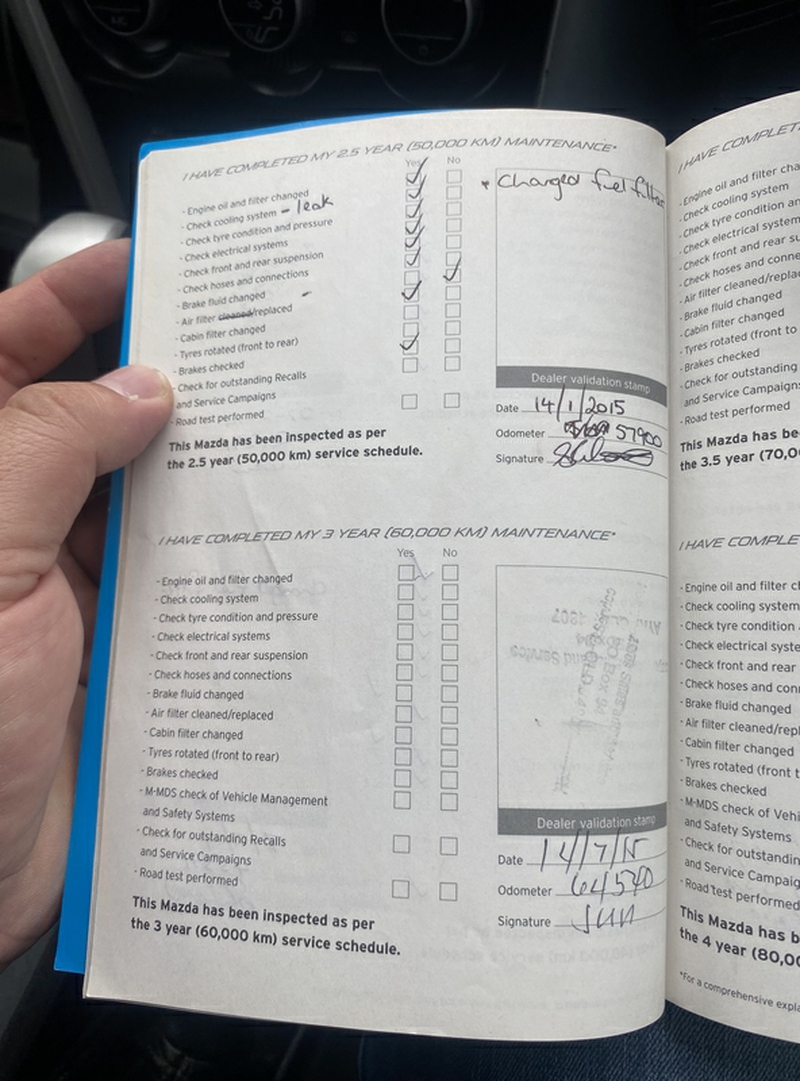 I HAVE COMPLETED MY 2.5 YEAR (50,000 KM) MAINTENANCE*
Yes No
- Engine oil and filter changed
- Check cooling system - leak
- Check tyre condition and pressure
- Check electrical systems
- Check front and rear suspension
- Check hoses and connections
- Brake fluid changed
- Air filter cleaned/replaced
- Cabin filter changed
- Tyres rotated (front to rear)
- Brakes checked
- Check for outstanding Recalls
and Service Campaigns
- Road test performed
This Mazda has been inspected as per
the 2.5 year (50,000 km) service schedule.
• Changed fuel filter
Dealer validation stamp
Date 14/1/2015
Odometer 57900
Signature
I HAVE COMPLETED MY 3 YEAR (60,000 KM) MAINTENANCE*
Yes No
- Engine oil and filter changed
- Check cooling system
- Check tyre condition and pressure
- Check electrical systems
- Check front and rear suspension
- Check hoses and connections
- Brake fluid changed
- Air filter cleaned/replaced
- Cabin filter changed
- Tyres rotated (front to rear)
- Brakes checked
- M-MDS check of Vehicle Management
and Safety Systems
- Check for outstanding Recalls
and Service Campaigns
- Road test performed
This Mazda has been inspected as per
the 3 year (60,000 km) service schedule.
Dealer validation stamp
Date 14/7/15
Odometer 64540
Signature
I HAVE COMPLET
- Engine oil and filter cha
- Check cooling system
- Check tyre condition an
- Check electrical system
- Check front and rear su
- Check hoses and conne
- Air filter cleaned/repla
- Brake fluid changed
- Cabin filter changed
- Tyres rotated (front to
- Brakes checked
- Check for outstanding
and Service Campaigns
- Road test performed
This Mazda has be
the 3.5 year (70,0
I HAVE COMPLE
- Engine oil and filter c
- Check cooling system
- Check tyre condition
- Check electrical syste
- Check front and rear
- Check hoses and con
- Brake fluid changed
- Air filter cleaned/repl
- Cabin filter changed
- Tyres rotated (front t
- Brakes checked
- M-MDS check of Vehi
and Safety Systems
- Check for outstandin
and Service Campaig
- Road test performed
This Mazda has b
the 4 year (80,00
*For a comprehensive expla